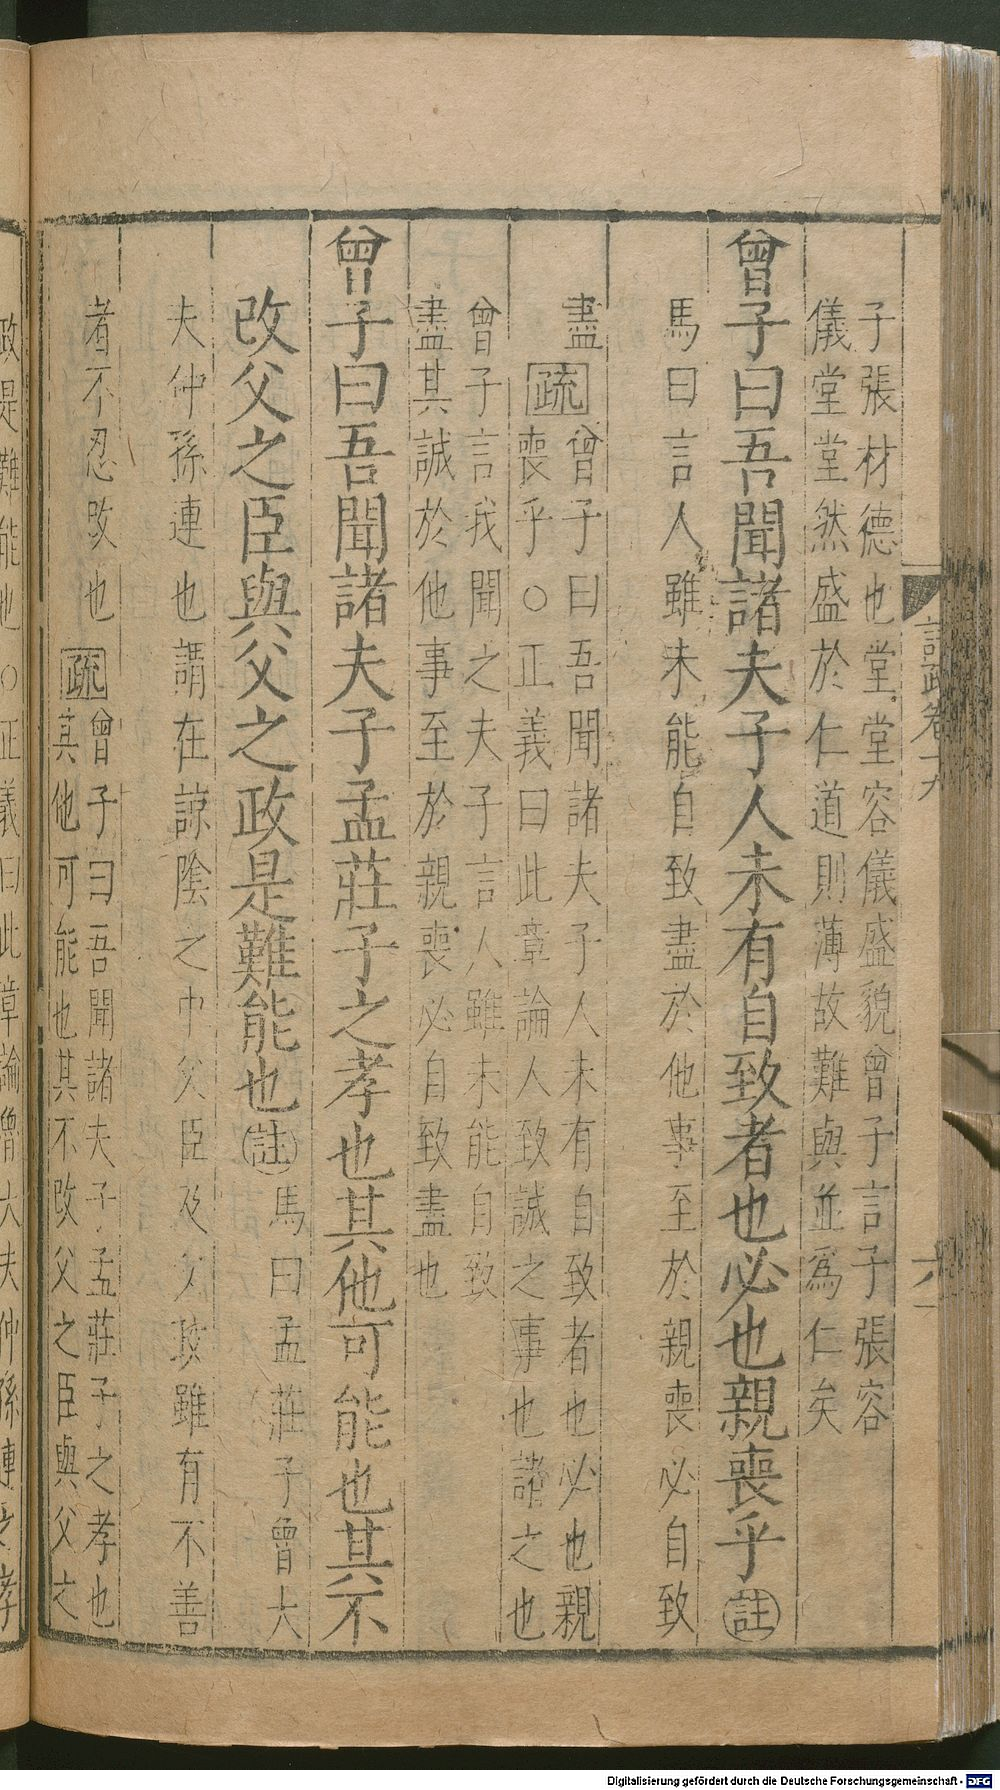 子張材德也堂堂容儀盛貌曾子言子張容
儀堂堂然盛於仁道則薄故難與並爲仁矣
曾子曰吾聞諸夫子人未有自致者也必也親喪乎註
馬曰言人雖未能自致盡於他事至於親喪必自致
盡疏曾子曰吾聞諸夫子人未有自致者也必也親
喪乎○正義曰此章論人致誠之事也諸之也
曾子言我聞之夫子言人雖未能自致
盡其誠於他事至於親喪必自致盡也
曾子曰吾聞諸夫子孟莊子之孝也其他可能也其不
改父之臣與父之政是難能也註馬曰孟莊子魯大
夫仲孫連也謂在諒陰之中父臣及父政雖有不善
者不忍改也疏曾子曰吾聞諸夫子孟莊子之孝也
其他可能也其不改父之臣與父之
政是難能也○正義曰此章論魯大夫仲孫連之孝
六
Digitalisierung gefördert durch die Deutsche Forschungsgemeinschaft - DFG